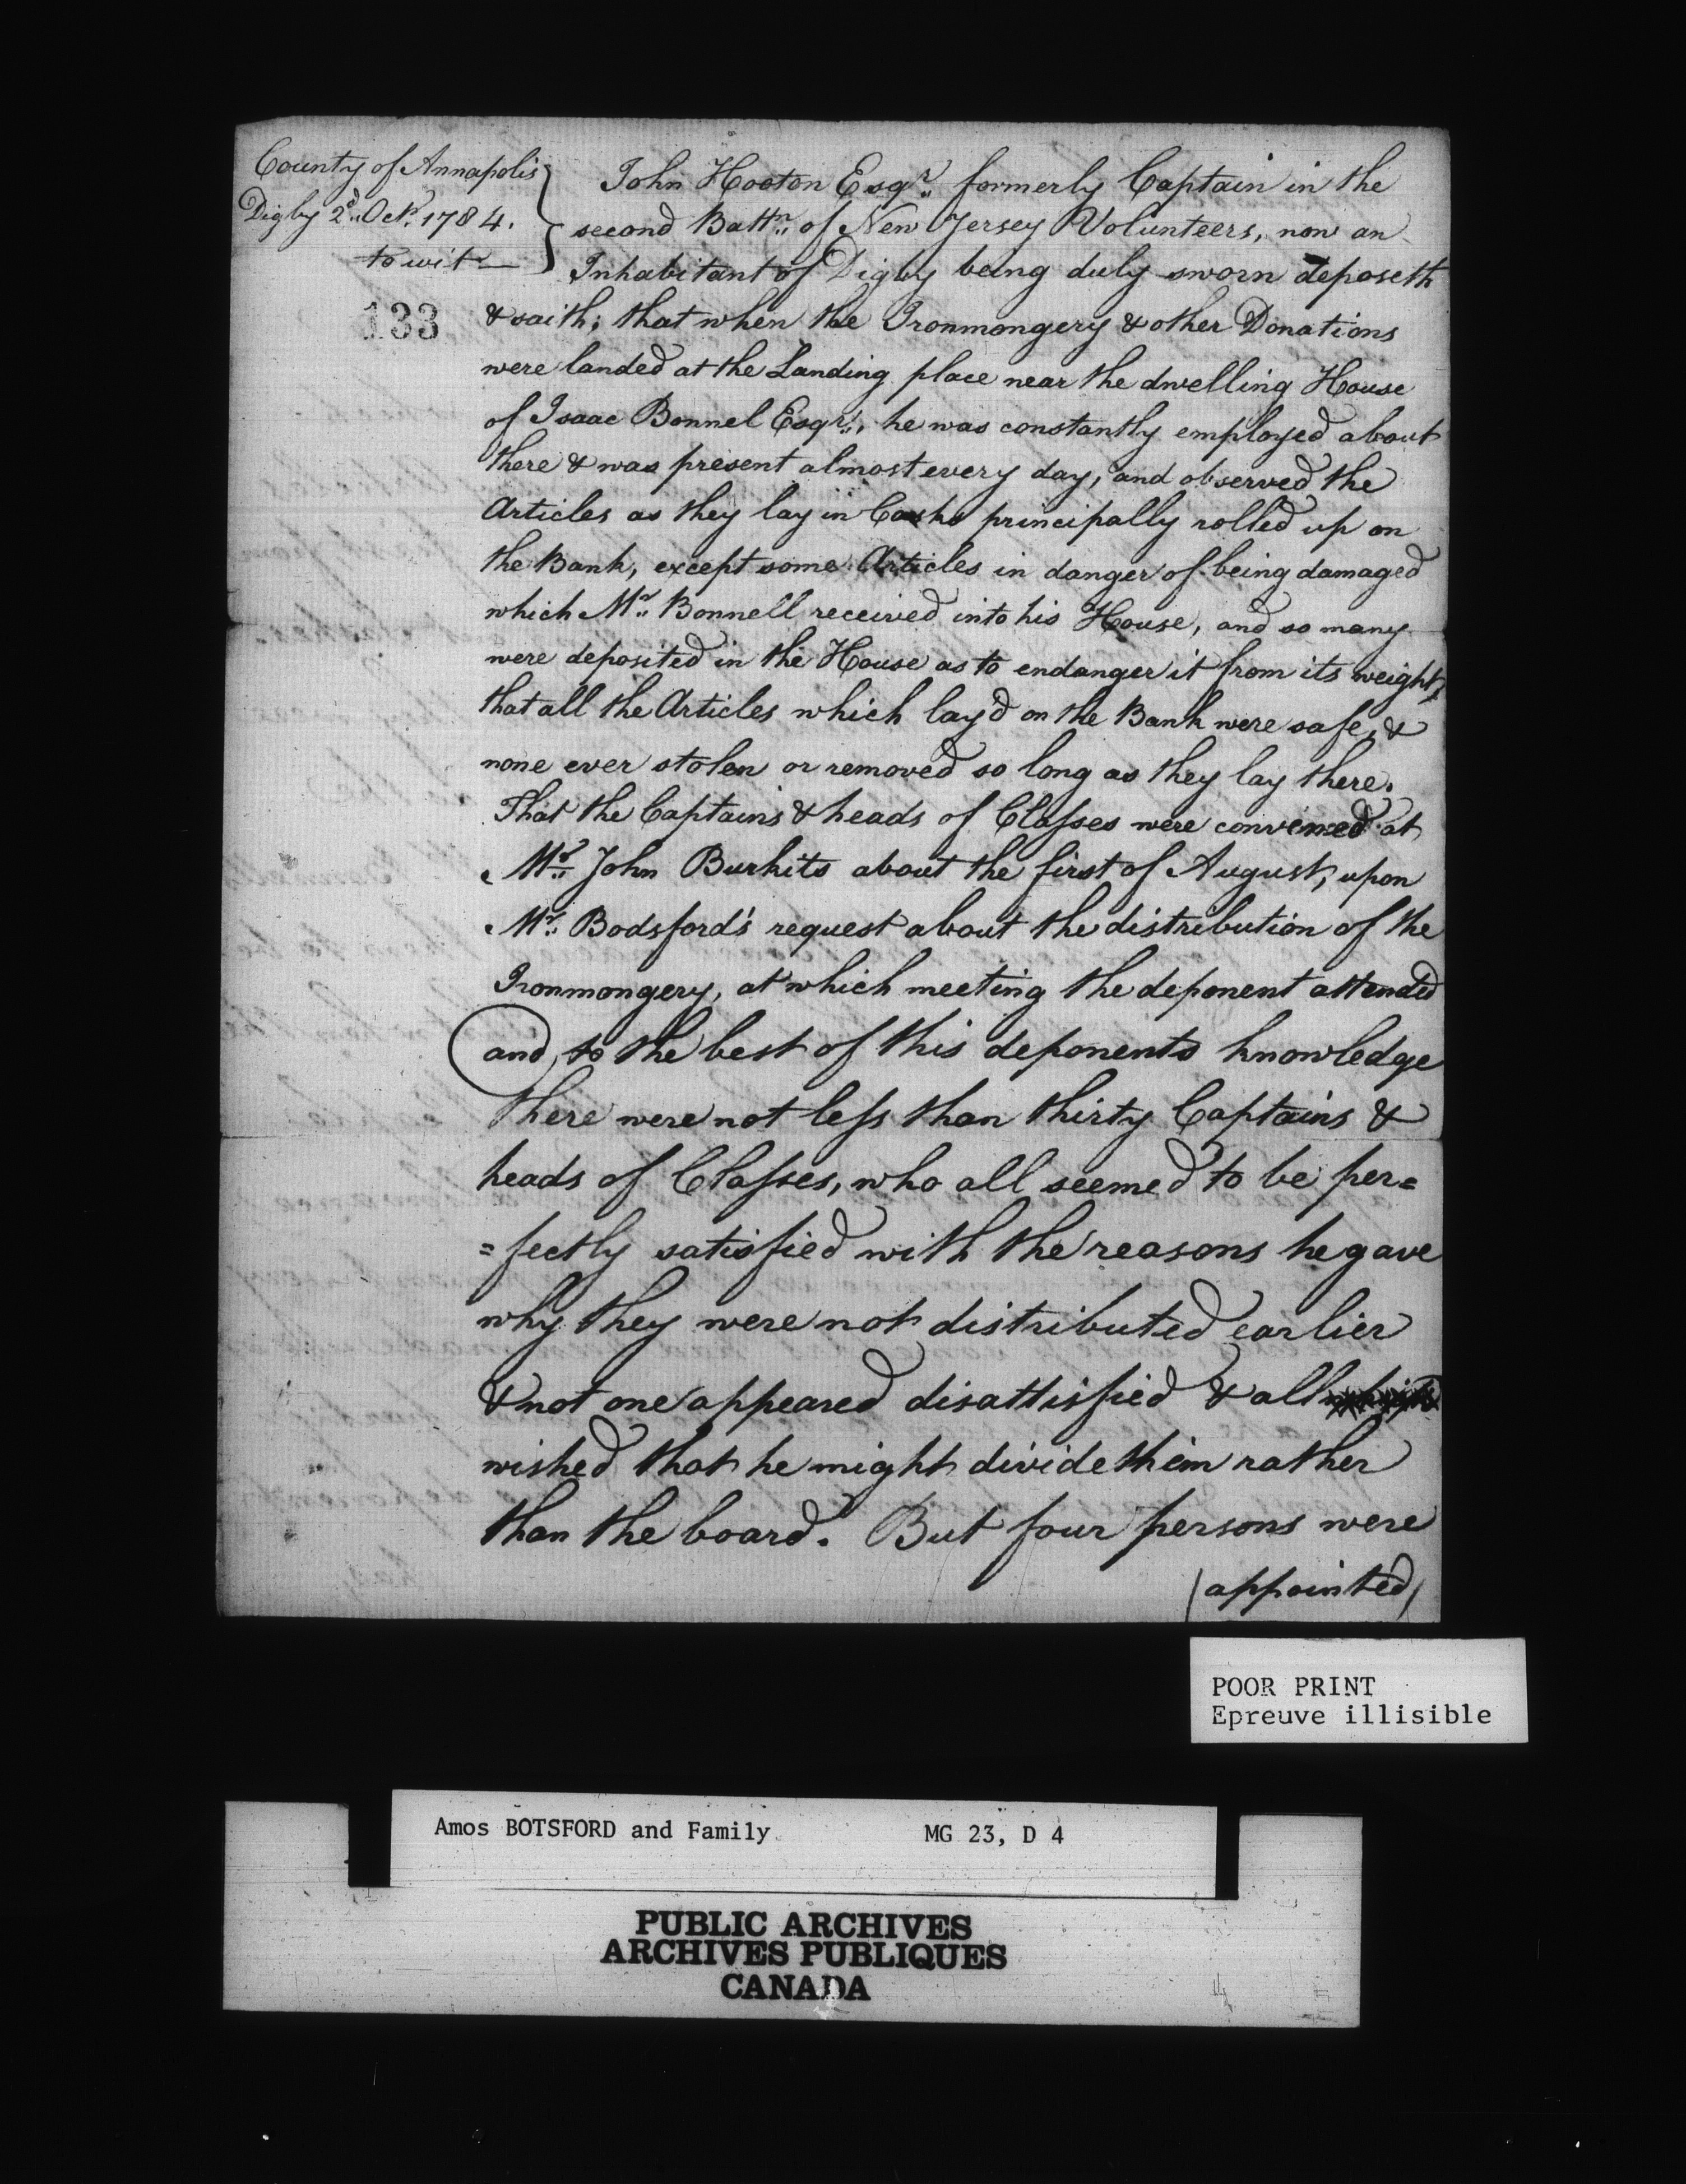 County of Annapolis
Digby 2d. Octr. 1784.
to wit —
133
John Hooton Esqr. formerly Captain in the
second Battn. of New Jersey Volunteers, now an
Inhabitant of Digby being duly sworn deposeth
& saith; that when the Ironmongery & other Donations
were landed at the Landing place near the dwelling House
of Isaac Bonnel Esqr., he was constantly employed about
there & was present almost every day, and observed the
Articles as they lay in Casks principally rolled up on
the Bank, except some Articles in danger of being damaged
which Mr. Bonnell received into his House, and so many
were deposited in the House as to endanger it from its weight,
that all the Articles which lay'd on the Bank were safe, &
none ever stolen or removed so long as they lay there.
That the Captains & heads of Classes were convened at
Mr. John Burkits about the first of August, upon
Mr. Bodsford's request about the distribution of the
Ironmongery, at which meeting the deponent attended
and, to the best of this deponents knowledge
there were not less than thirty Captains &
heads of Classes, who all seemed to be per=
=fectly satisfied with the reasons he gave
why they were not distributed earlier
& not one appeared disattisfied & all
wished that he might divide them rather
than the board. But four persons were
(appointed)
POOR PRINT
Epreuve illisible
Amos BOTSFORD and Family MG 23, D 4
PUBLIC ARCHIVES
ARCHIVES PUBLIQUES
CANADA